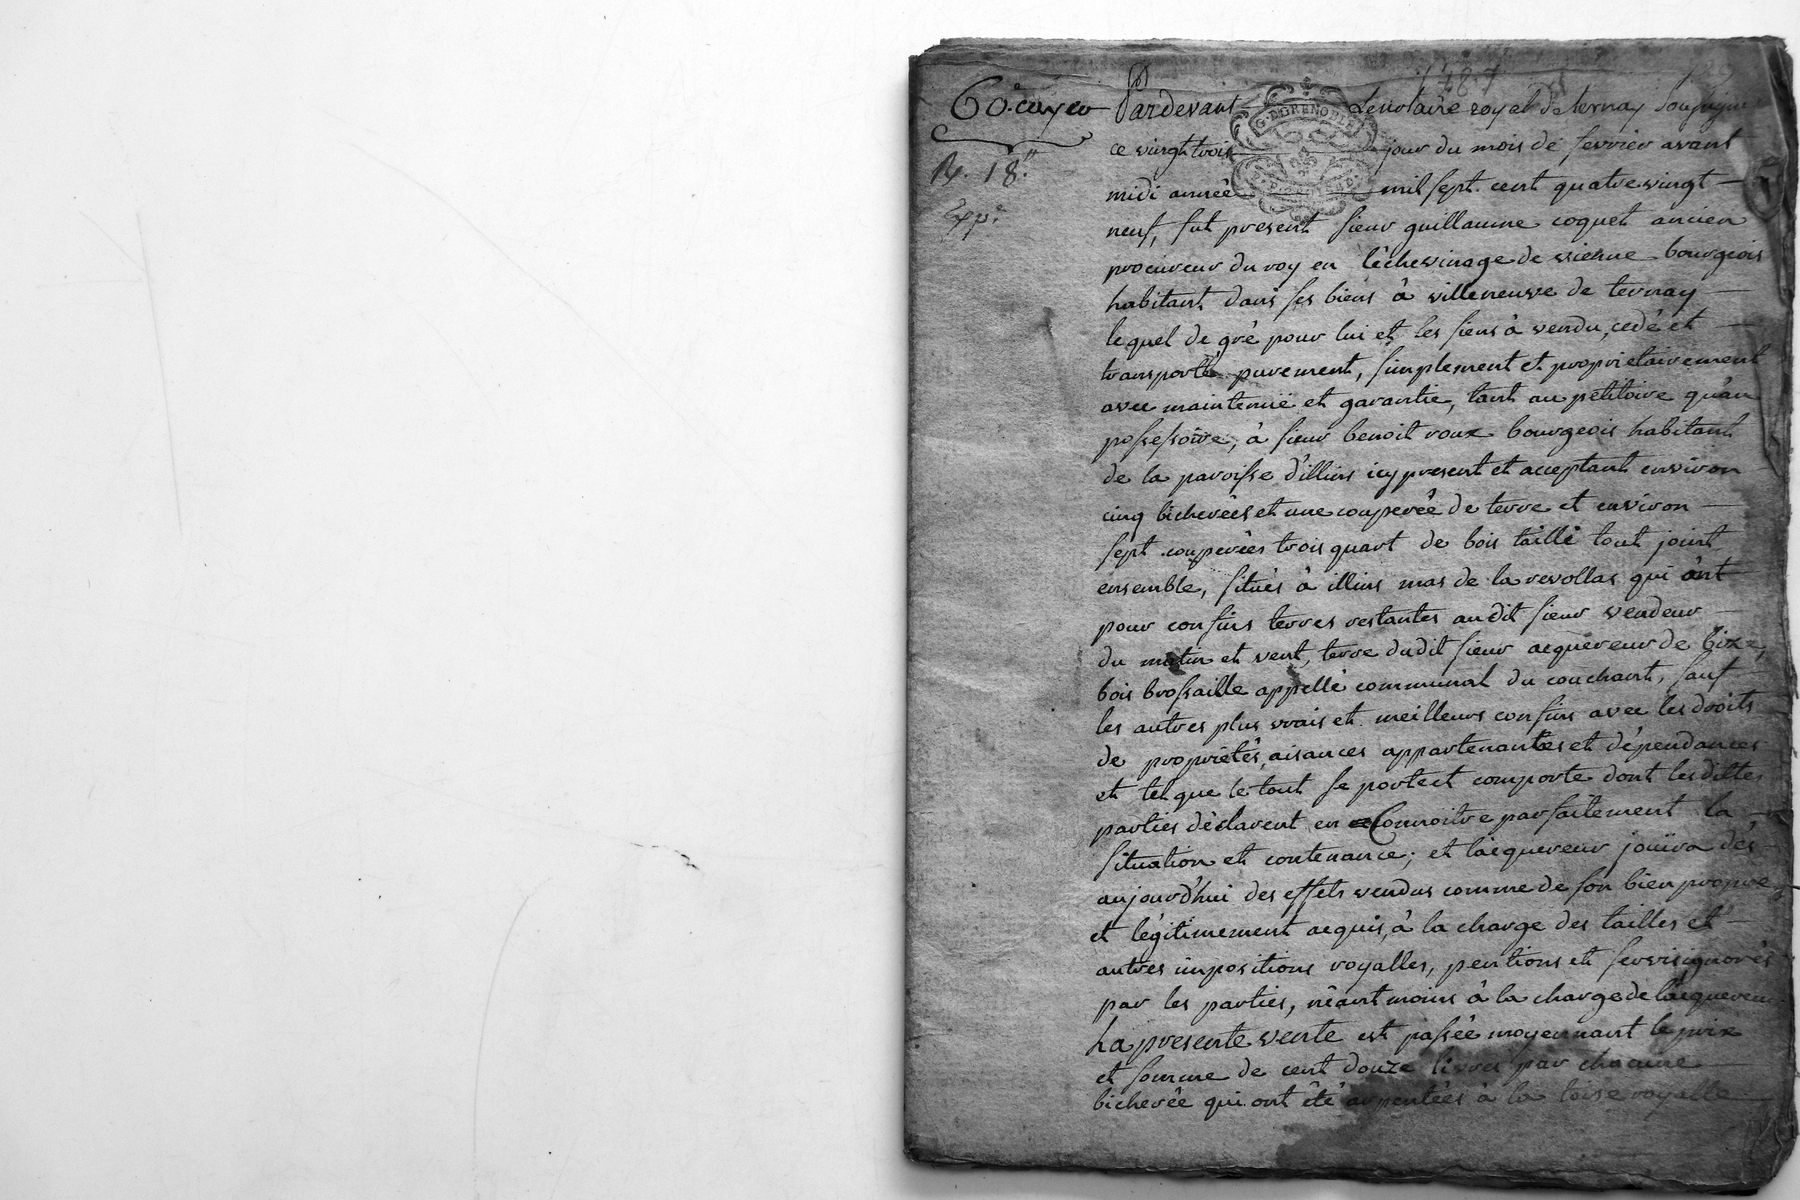 60.e cayer
R. 18.tt
Exp.é
G. D GRENOBLE
Pardevant Le notaire royal de ternay soussigné
ce vingt trois jour du mois de fevrier avant
midi année mil sept. cent quatre vingt
neuf, fut present sieur guillaume coquet ancien
procureur du roy en lêchevinage de vienne bourgeois
habitant dans ses biens â villeneuve de ternay
lequel de gré pour lui et les siens â vendu, cedé et
transporté purement, simplement et proprietairement
avec maintenüe et garantie, tant au petitoire qu'au
possessoire, â sieur benoit roux bourgeois habitant
de la paroisse d'illins icy present et acceptant environ
cinq bicherêes et une couperêe de terre et environ
sept couperêes trois quart de bois taillé tout joint
ensemble, situés â illins mas de la revollas qui ônt
pour confins terres restantes audit sieur vendeur
du matin et vent, terre dudit sieur acquereur de bize,
bois brossaille appellé communal du couchant, sauf
les autres plus vrais et meilleurs confins avec les droits
de propriétés, aisances appartenantes et dépendances
et tel que le tout se porte et comporte dont lesdittes
parties déclarent en Connoitre parfaitement la
situation et contenance; et lacquereur jouira dés
aujourd'hui des effets vendus comme de son bien propre
et légitimement acquis, â la charge des tailles et
autres impositions royalles, pentions et servis ignorés
par les parties, nêant moins â la charge de lacquereur
La presente vente est passée moyennant le prix
et somme de cent douze livres par chacune
bicherêe qui ont êté arpentées â la toise royalle